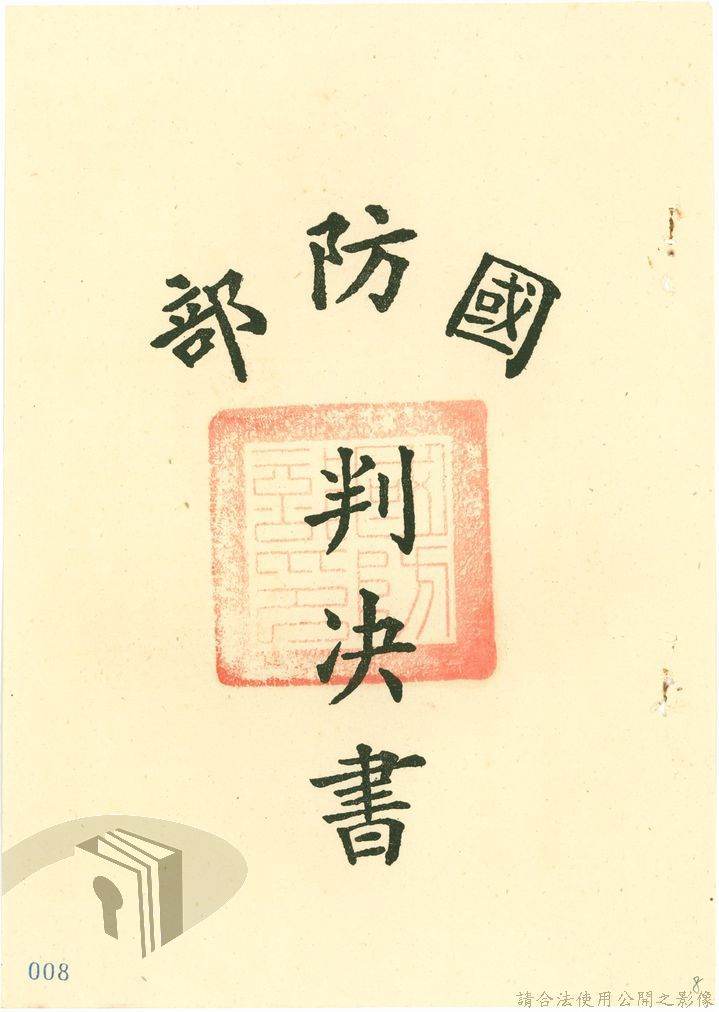 國防部
判決書
008
8
請合法使用公開之影像